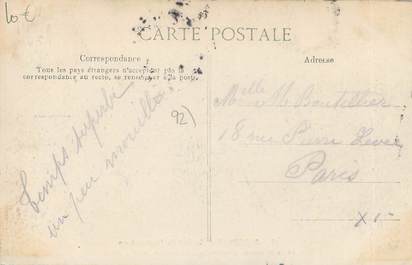 10€
CARTE POSTALE
Correspondance
Tous les pays étrangers n'acceptant pas la
correspondance au recto, se renseigner à la poste.
Adresse
Temps superbe
un peu mouillé
92)
Melle M Boutillier
18 rue Pierre
Paris
X1-